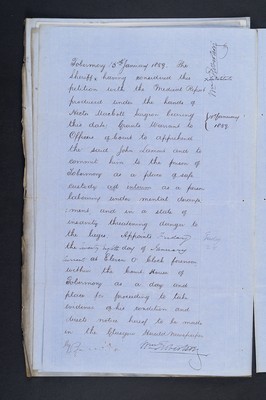 Tobermory 15th January 1889. The
Sheriff, having considered this
petition with the Medical Report
produced under the hands of
Hector Macneill Surgeon bearing
this date, Grants Warrant to
Officers of Court to apprehend
the said John and to
commit him to the prison of
Tobermory as a place of safe
custody as a person
labouring under mental derange
-ment and in a state of
insanity threatening danger to
the lieges. Appoints
the day of January
current at Eleven O'Clock forenoon
within the Court House of
Tobermory as a day and
place for proceeding to take
evidence of his condition and
directs notice hereof to be made
in the Glasgow Herald Newspaper
January
1889